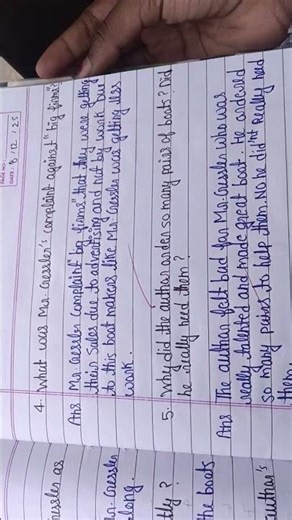 DATE: 8/12/25
4. What was Mr. Gessler's complaint against "big firms"?
Ans Mr Gessler complaint "big firms" that they were getting
their sales due to advertising and not by work but
to this boat makers like Mr. Gessler was getting less
work.
5. Why did the author order so many pairs of boats? Did
he really need them?
Ans The author felt bad for Mr. Gessler who was
really talented and made great boat. He ordered
so many pairs to help them. No he did nt really need
them
Gessler as
Gessler
along.
tly?
the boats
author's